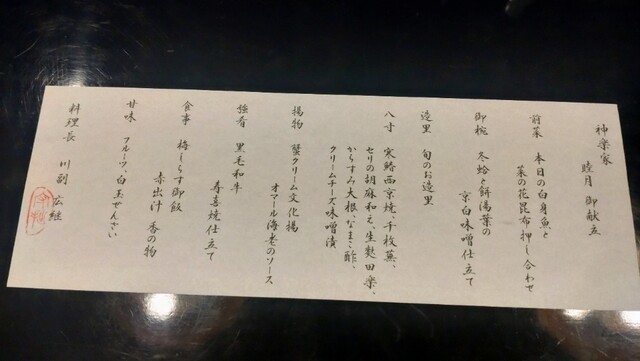 神楽家
睦月 御献立
前菜 本日の白身魚と
菜の花昆布押し合わせ
御椀 冬蛤と餅湯葉の
京白味噌仕立て
造里 旬のお造里
八寸 寒鰆西京焼、千枚蕪、
セリの胡麻和え、生麩田楽、
からすみ大根、なまこ酢、
クリームチーズ味噌漬
揚物 蟹クリーム文化揚
オマール海老のソース
強肴 黒毛和牛
寿喜焼仕立て
食事 梅しらす御飯
赤出汁 香の物
甘味 フルーツ、白玉ぜんざい
料理長 川副 広継